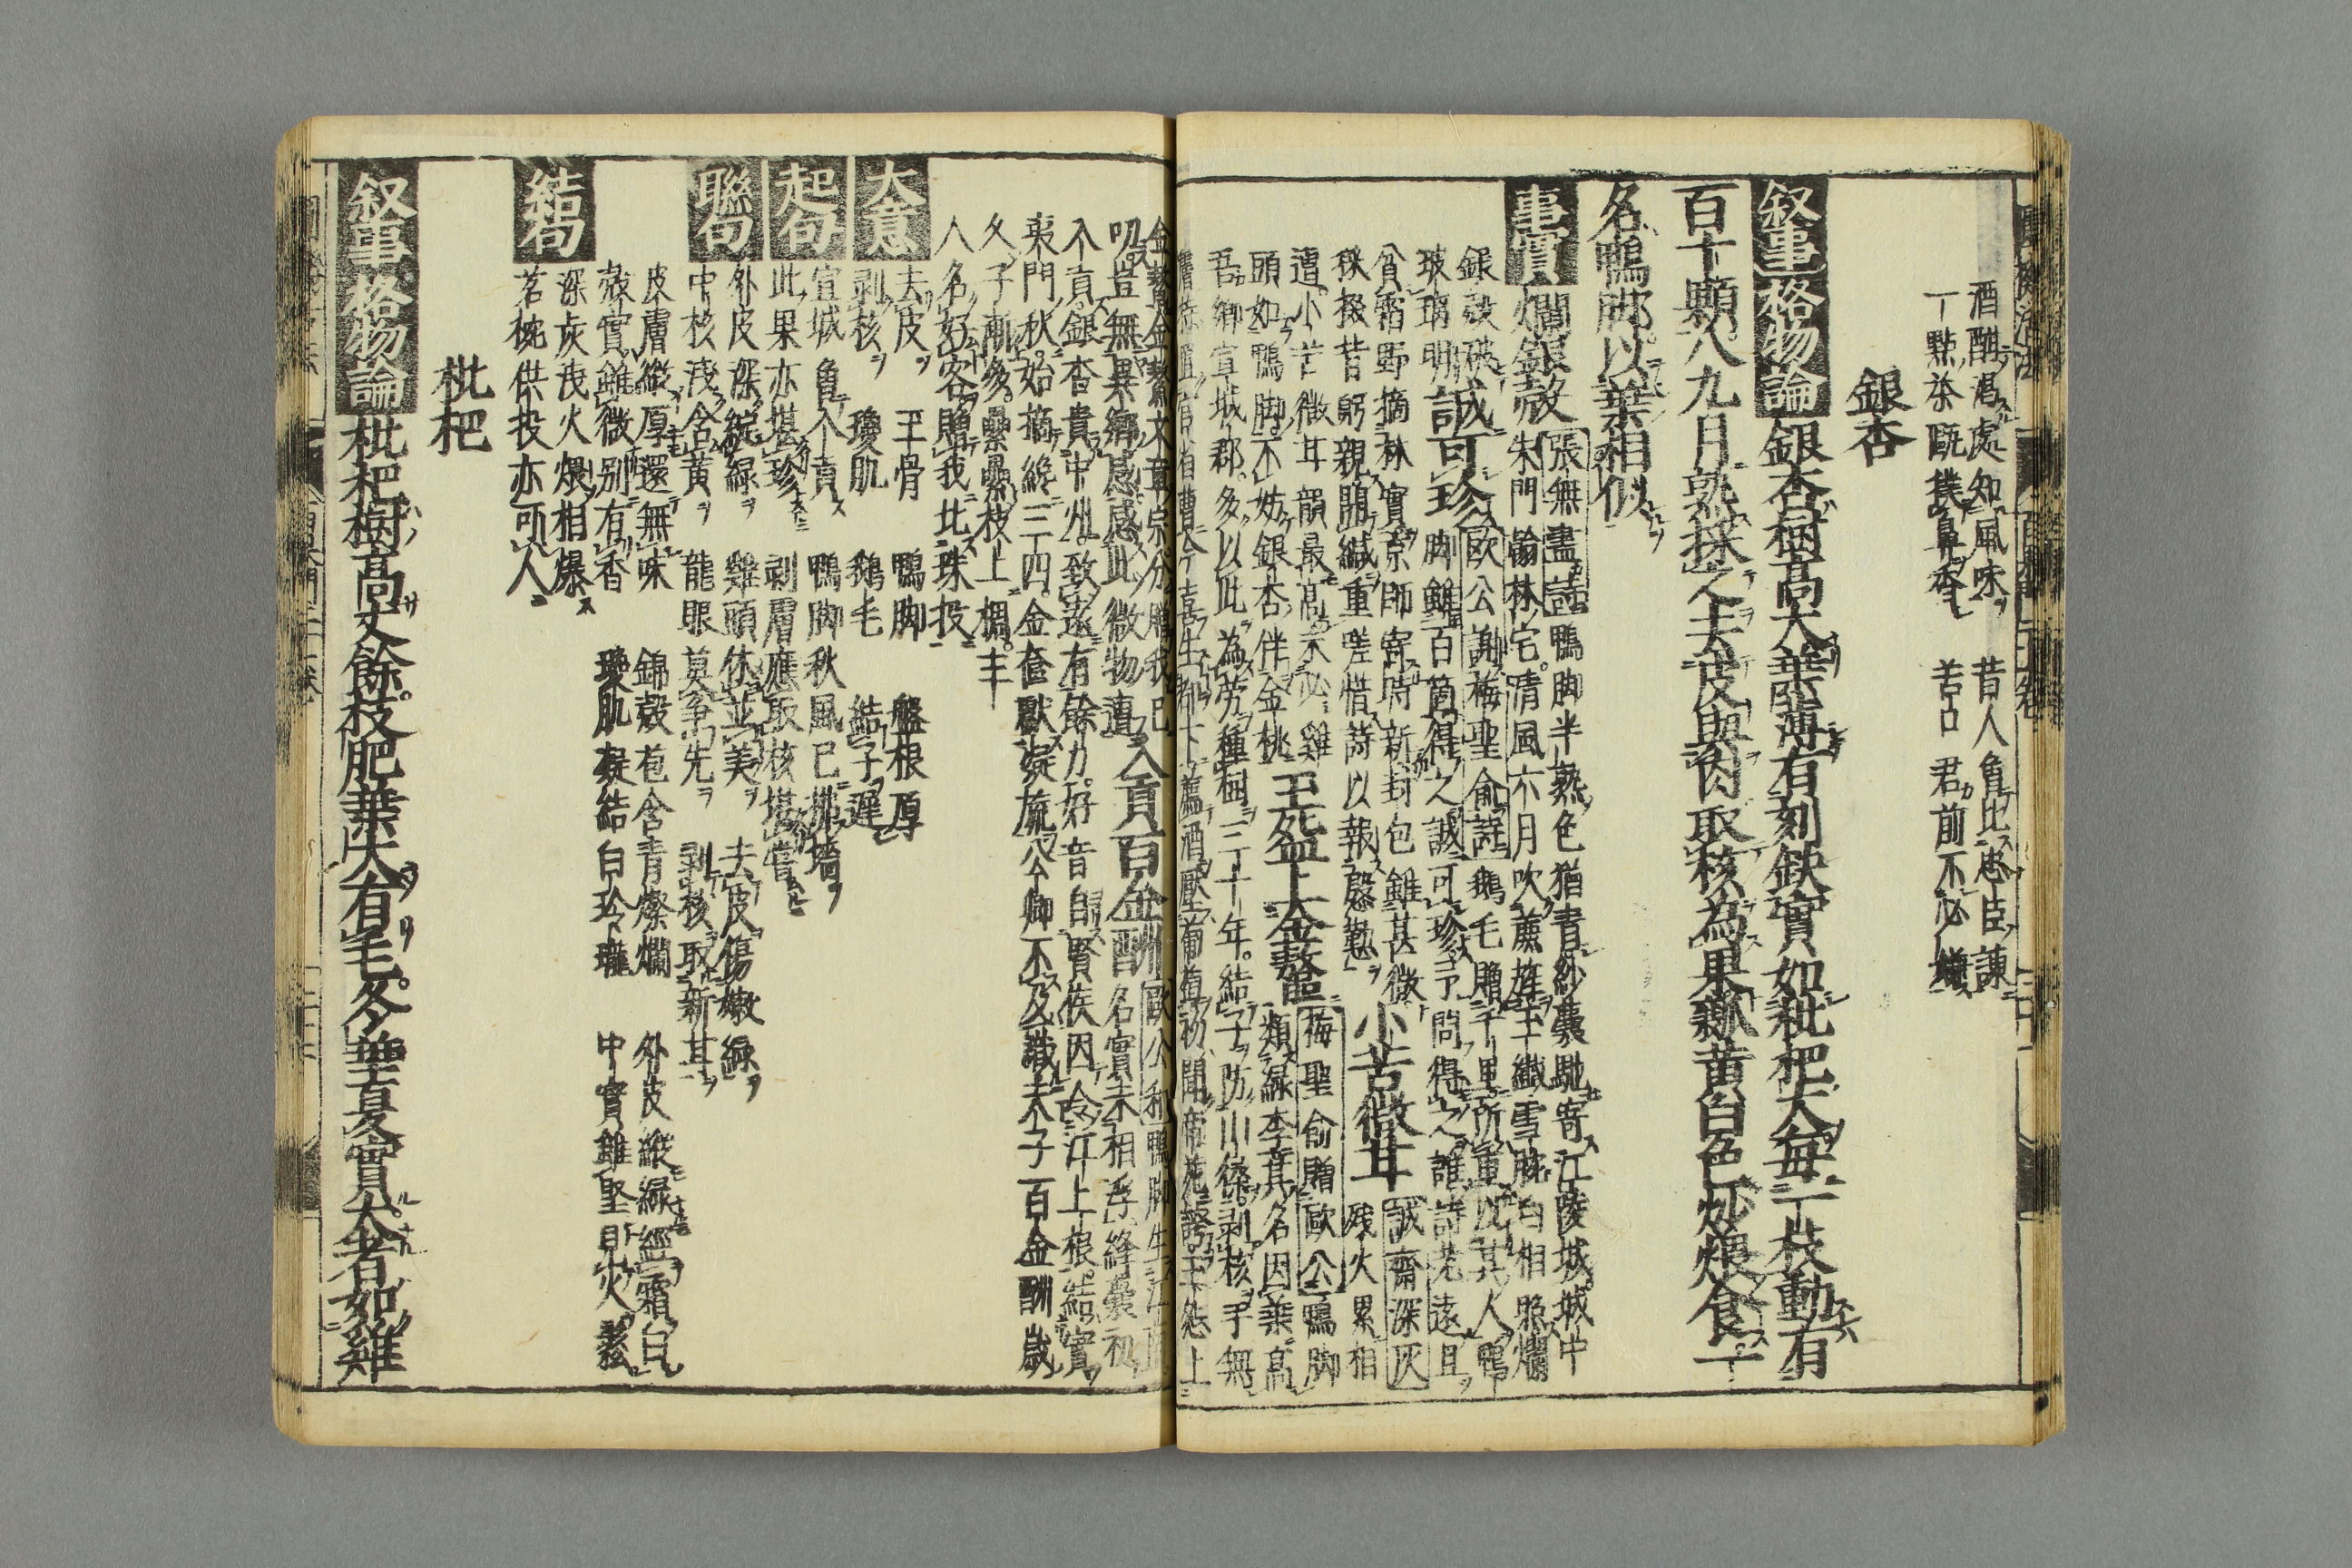 酒酣渇處知風味 昔人曾比忠臣諫
一點茶甌撲鼻香 苦口君前不必嫌
銀杏
叙事 格物論 銀杏樹高大葉薄有刻缺實如枇杷大每一枝動有
百十顆八九月熟採之去皮與肉取核為果瓤黄白色炒煨食一
名鴨脚以葉相似
事實 爛銀殼 張無盡詩鴨脚半熟色猶青紗囊馳寄江陵城城中
朱門翰林宅清風六月吹簾旌玉纖雪腕白相照爛
銀殼破玻璃明
誠可珍 歐公謝梅聖俞詩鵝毛贈千里所重以其人鴨
脚雖百箇得之誠可珍予問得之誰詩老遠且
貧霜野摘林實京師寄時新封包雖甚微
採掇皆躬親開緘重嗟惜詩以報慇懃
小苦微甘 誠齋深灰
殘火累相
遭小苦微甘韻最高未必雞
頭如鴨脚不妨銀杏伴金桃
玉盌上金鼇 梅聖俞贈歐公鴨脚
類緑李其名因葉高
吾郷宣城郡多以此為勞種樹三十年結子防山猱剥核手無
入貢百金酬 歐公和鴨脚生江南
名實未相浮絳囊初
入貢銀杏貴中州致遠有餘力好音自賢侯因令江上根結實
夷門秋始摘纔三四金奩獻凝旒公卿不及識天子百金酬歲
久子漸多纍纍枝上稠主
人名好客贈我比珠投
大意 去皮 玉骨 鴨脚 盤根厚
剥核 瓊肌 鵝毛 結子遲
起句 宣城曾入貢 鴨脚秋風已挪墻
此果亦堪珍 剥膚應取核堪嘗
聯句 外皮深綻緑 雞頭休並美 去皮傷嫩緑
中核淺含黄 龍眼莫爭先 剥核取新甘
皮膚縱厚還無味 錦殼苞含青燦爛 外皮縱緑經霜白
殼實雖微别有香 瓊肌凝結白玲瓏 中實雖堅見火
結句 深灰淺火煨相爆
茗椀供投亦可人
枇杷
叙事 格物論 枇杷樹高丈餘枝肥葉大有毛冬華夏實大者如雞